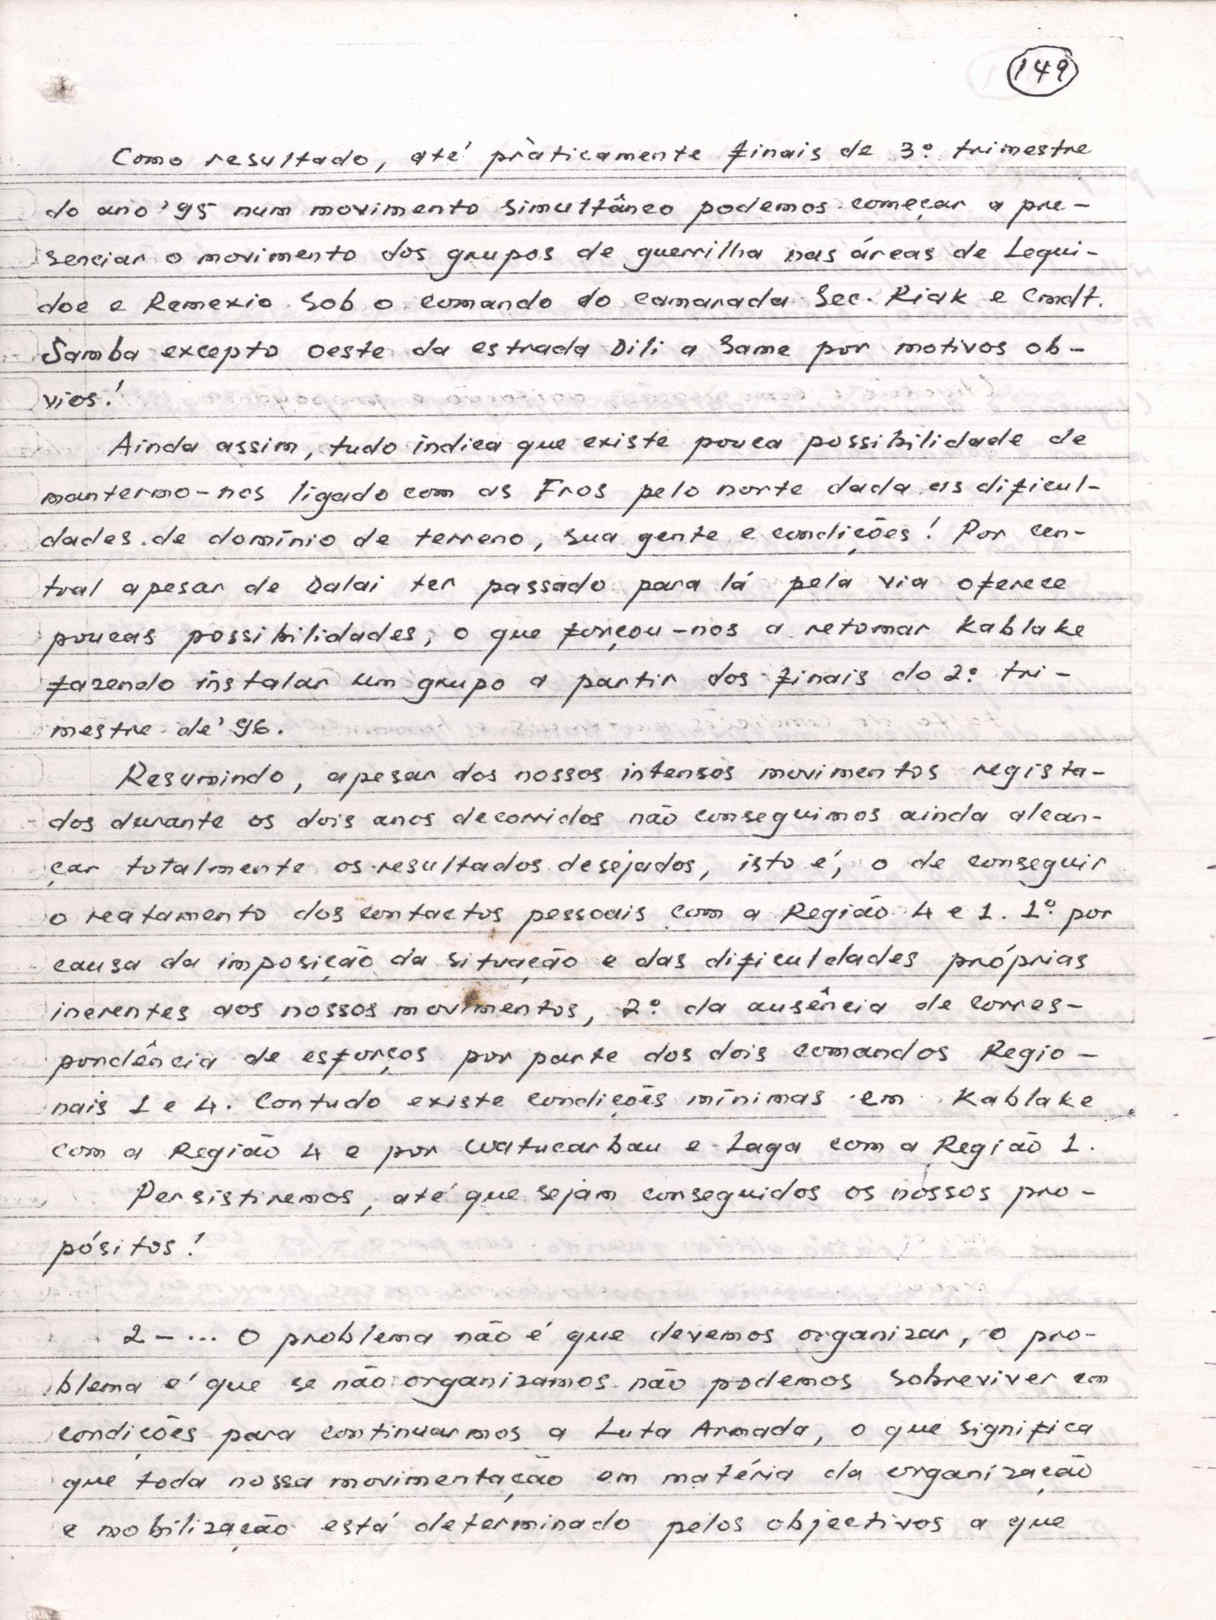 149
Como resultado, até pràticamente finais de 3º trimestre
do ano '95 num movimento simultâneo podemos começar a pre-
senciar o movimento dos grupos de guerrilha nas áreas de Lequi-
doe e Remexio sob o comando do camarada Sec. Riak e Cmdt.
Samba excepto oeste da estrada Dili a Same por motivos ob-
vios!
Ainda assim, tudo indica que existe pouca possibilidade de
mantermo-nos ligado com as Fros pelo norte dada as dificul-
dades de domínio de terreno, sua gente e condições! Por cen-
tral apesar de Dalai ter passado para lá pela via oferece
poucas possibilidades, o que forçou-nos a retomar Kablake
fazendo instalar um grupo a partir dos finais do 2º tri-
mestre de '96.
Resumindo, apesar dos nossos intensos movimentos regista-
dos durante os dois anos decorridos não conseguimos ainda alcan-
çar totalmente os resultados desejados, isto é, o de conseguir
o reatamento dos contactos pessoais com a Região 4 e 1. 1º por
causa da imposição da situação e das dificuldades próprias
inerentes aos nossos movimentos, 2º da ausência de corres-
pondência de esforços por parte dos dois comandos Regio-
nais 1 e 4. Contudo existe condições mínimas em Kablake
com a Região 4 e por Watucarbau e Laga com a Região 1.
Persistiremos, até que sejam conseguidos os nossos pro-
pósitos!
2 - ... O problema não é que devemos organizar, o pro-
blema é que se não organizamos não podemos sobreviver em
condições para continuarmos a Luta Armada, o que significa
que toda nossa movimentação em matéria da organização
e mobilização está determinado pelos objectivos a que